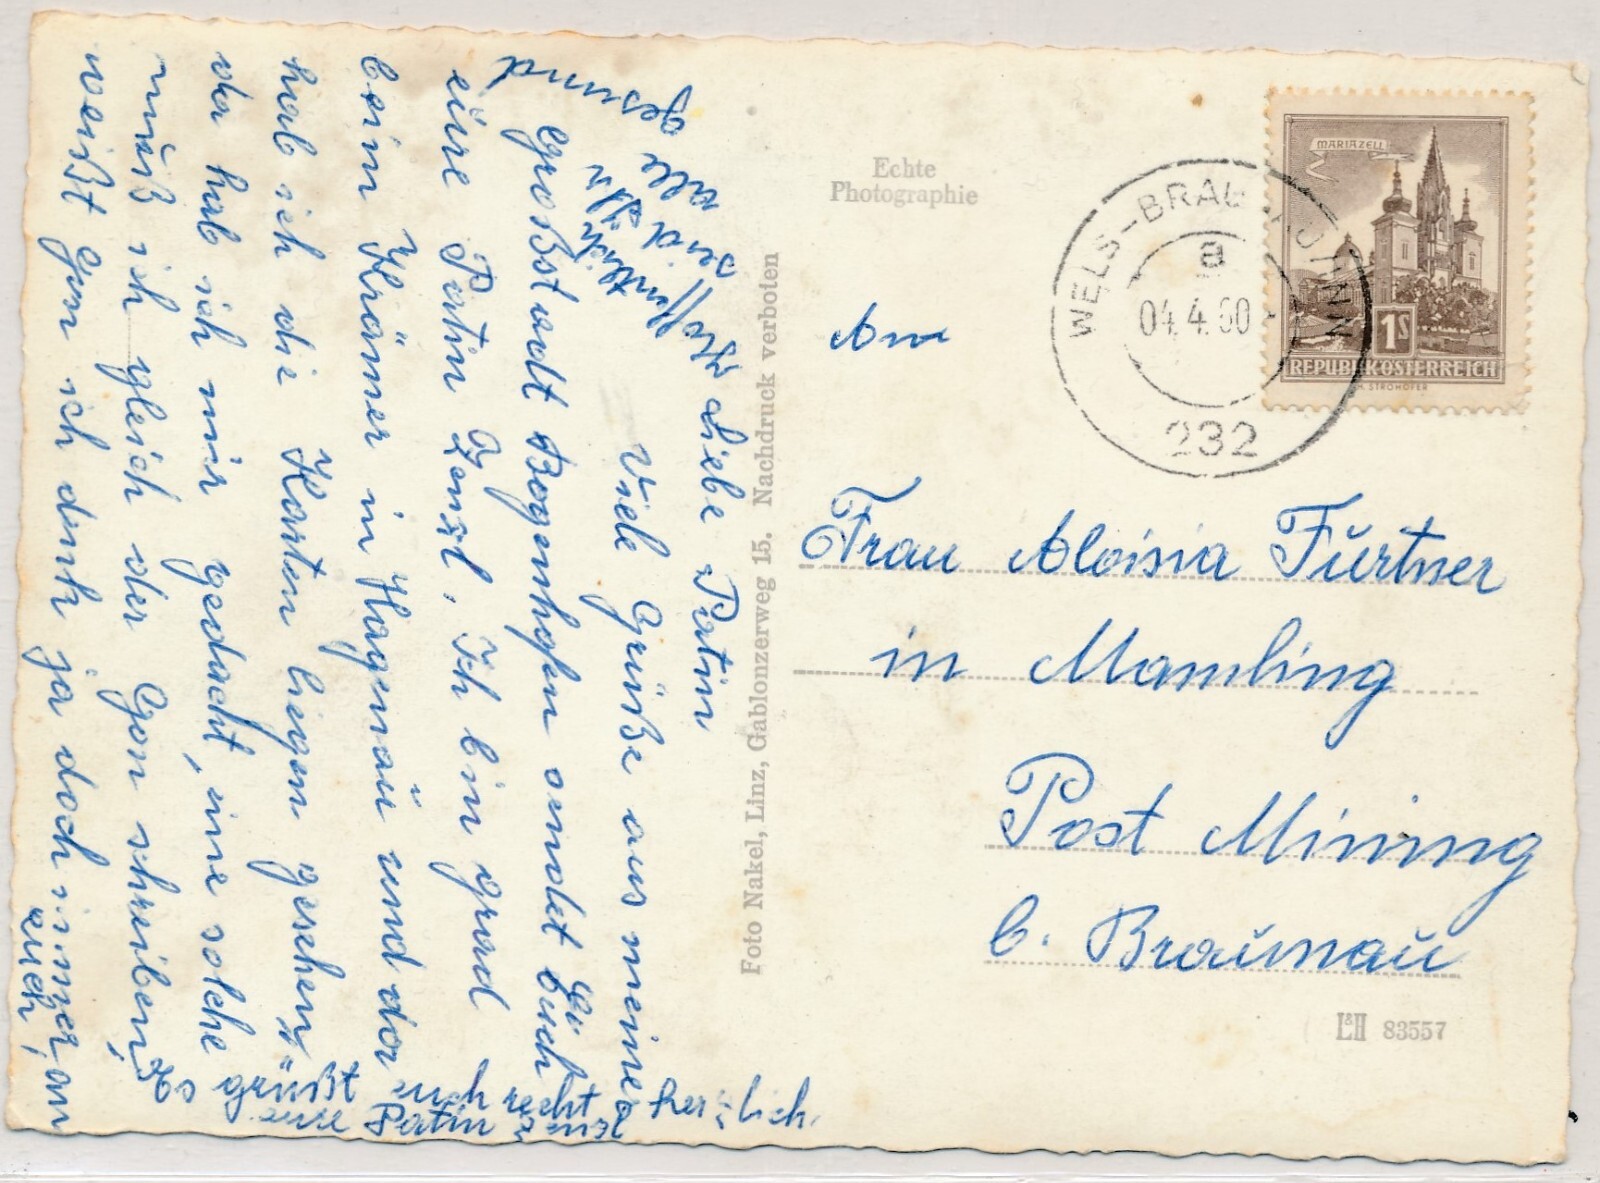 Liebe Patin
Viele Grüße aus meiner
Großstadt Bogenhofen sendet Euch
eüre Patin Zenzl. Ich bin grad
beim Krämer in Hagenaü und da
hab ich die Karten liegen gesehen,
da hab ich mir gedacht, ine solche
muß ich gleich der schreiben,
weißt ich denk ja doch immer an
euch,
Hoffentlich
seid
alle
gesund
Es grüßt euch recht herzlich
eure Patin Zenzl
Foto Nakel, Linz, Gablonzerweg 15. Nachdruck verboten
Echte
Photographie
MARIAZELL
1S
REPUBLIK ÖSTERREICH
H. STROHOFER
WELS-BRAUNAU/INN
a
04.4.60
232
An
Frau Aloisia Fürtner
in Mamling
Post Mining
b. Braünaü
L&H 83557